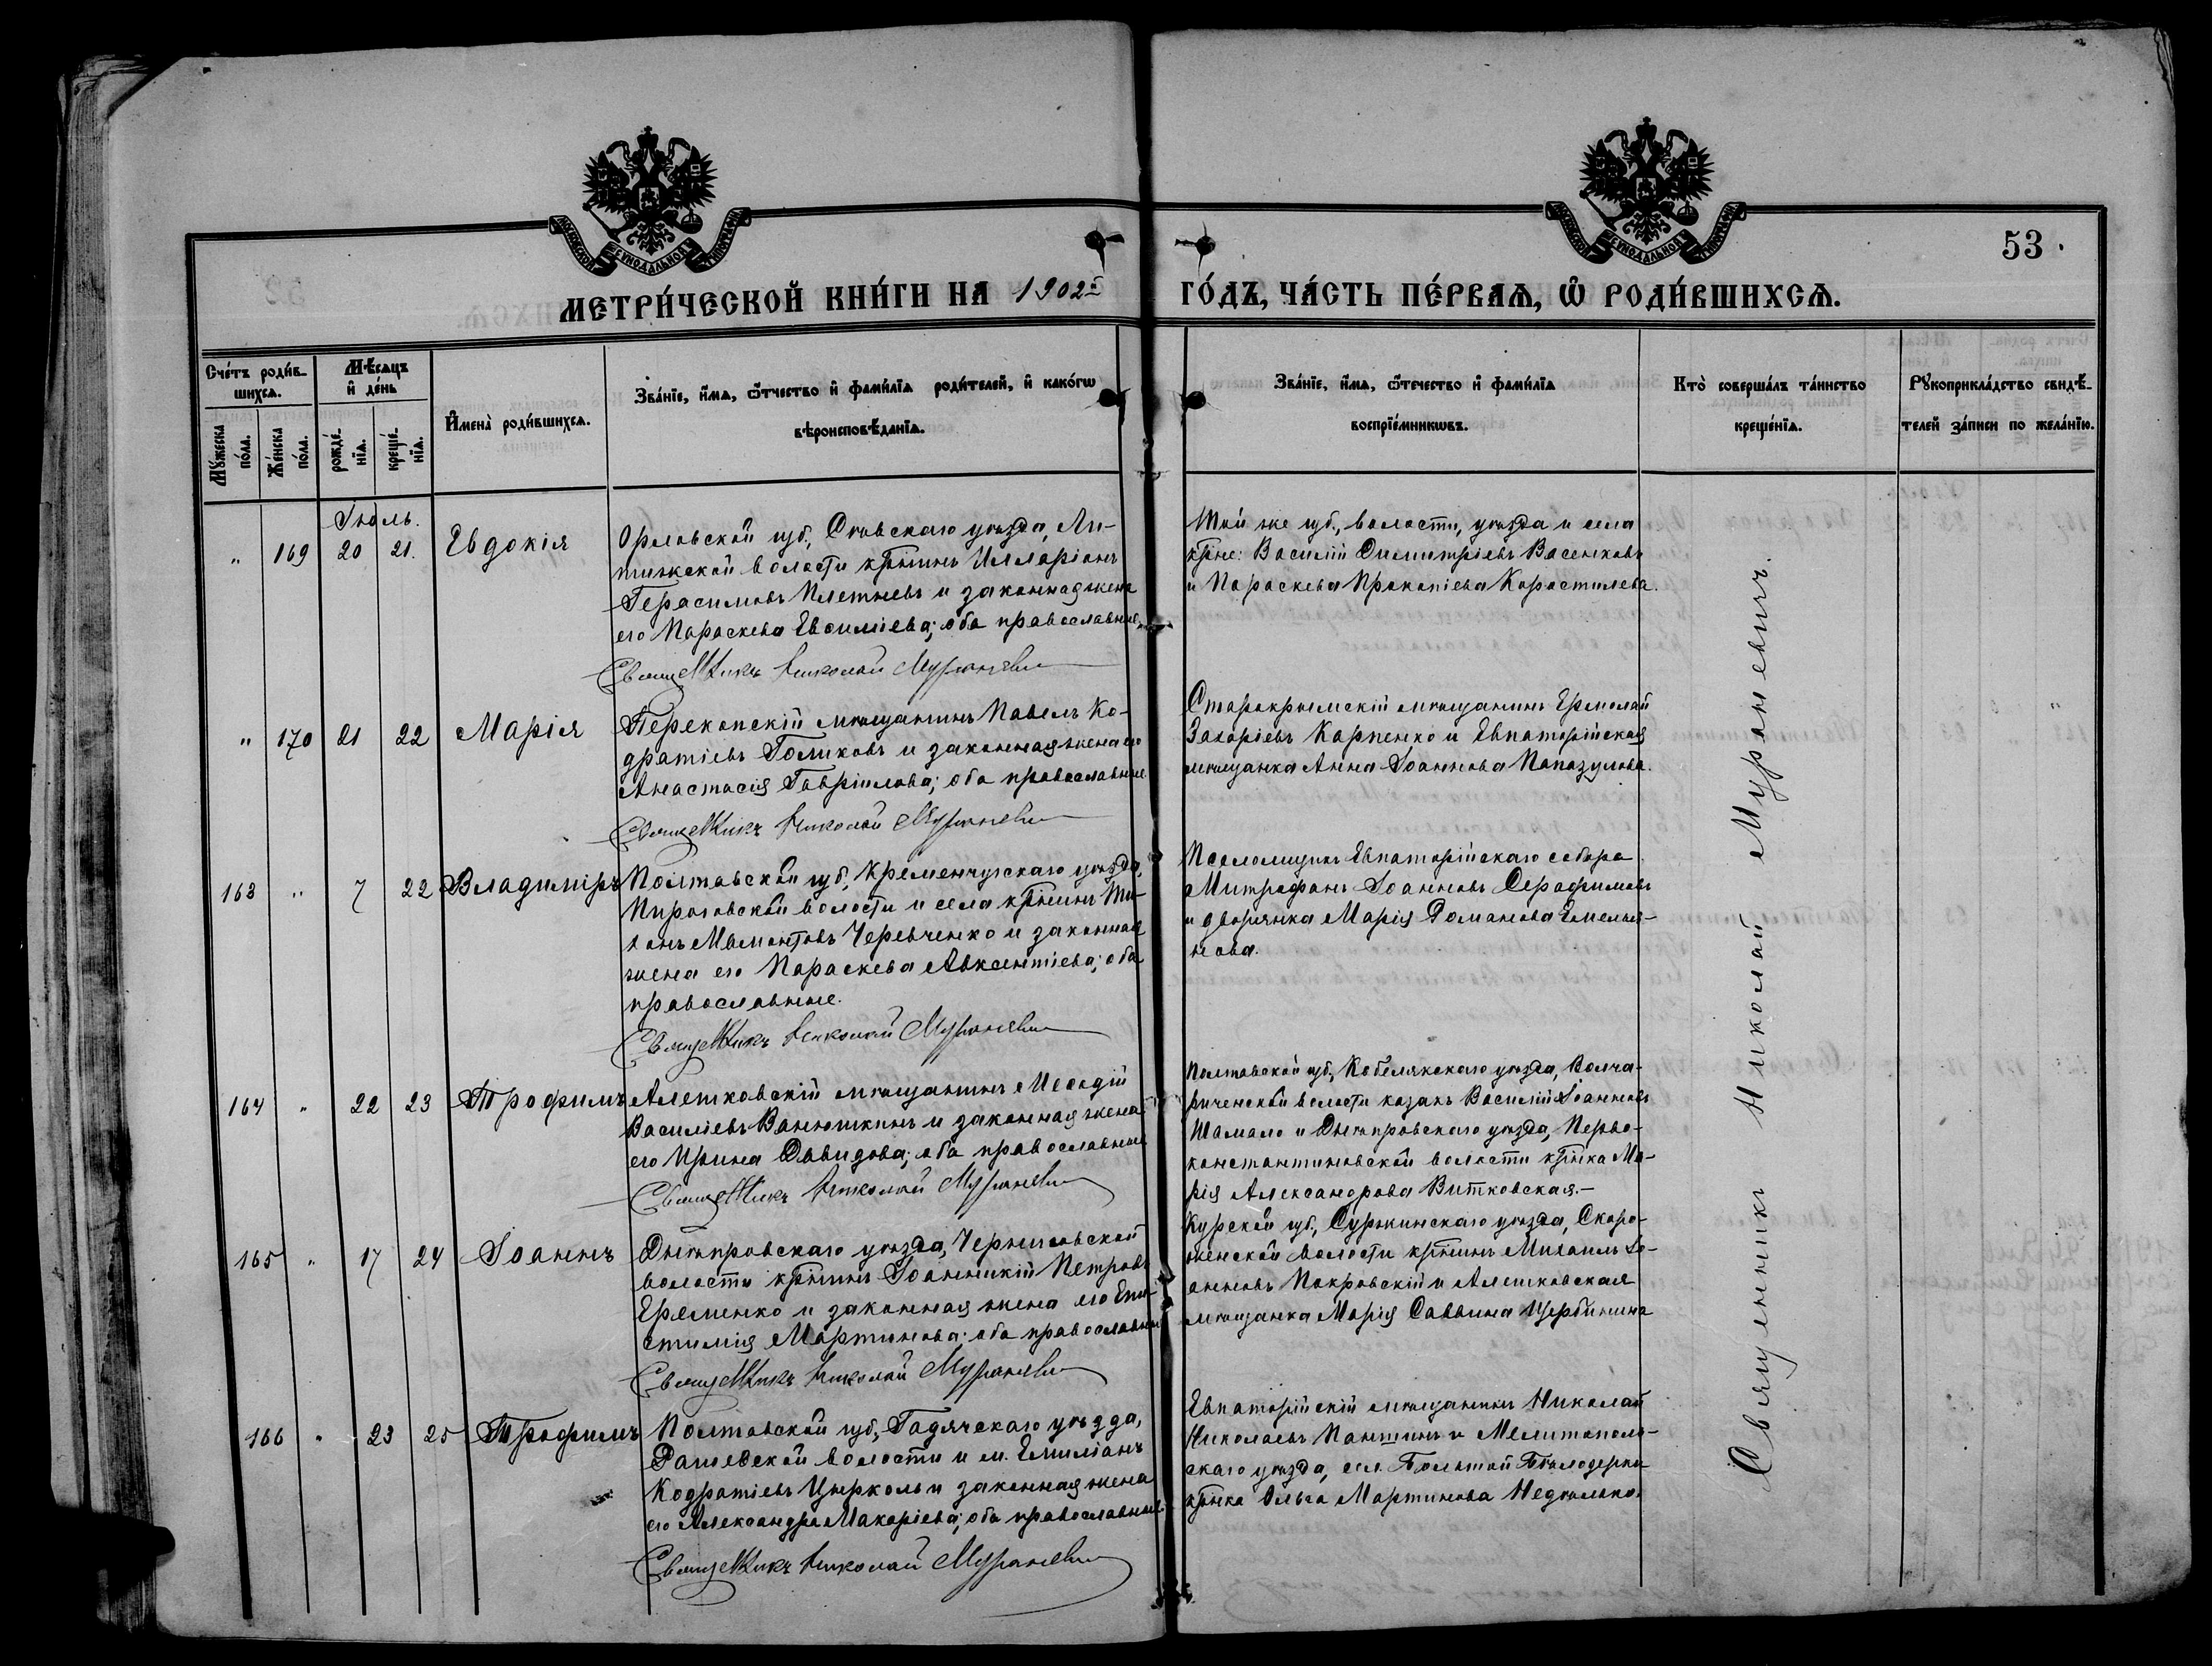 МОСКОВСКОЙ СѴНОДАЛЬНОЙ ТИПОГРАФІИ
МОСКОВСКОЙ СѴНОДАЛЬНОЙ ТИПОГРАФІИ
53.
МЕТРИ́ЧЕСКОЙ КНИ́ГИ НА 1902й ГО́ДЪ, ЧА́СТЬ ПЕ́РВАѦ, Ѽ РОДИ́ВШИХСѦ.
Сче́тъ роди́в-
шихсѧ.
Мꙋ́жеска
по́ла.
Же́нска
по́ла.
Мѣ́сѧцъ
и҆ де́нь
рожде́-
нїѧ.
креще́-
нїѧ.
И҆мена̀ роди́вшихсѧ.
Зва́нїе, и҆́мѧ, ѻ҆́тчество и҆ фами́лїѧ роди́телей, и҆ како́гѡ
вѣроисповѣ́данїѧ.
Зва́нїе, и҆́мѧ, ѻ҆́течество и҆ фами́лїѧ
воспрїе́мникѡвъ.
Кто̀ соверша́лъ та́инство
креще́нїѧ.
Рꙋкоприкла́дство свидѣ́-
телей за́писи по жела́нїю.
Іюль.
" 169 20 21. Евдокія
Орловской губ., Сѣвскаго уѣзда, Ли-
тижской волости крнинъ Илларіонъ
Герасимовъ Плетневъ и законная жена
его Параскева Евсиміева; оба православные.
Священникъ Николай Мураневич
Той же губ., волости, уѣзда и села
крне: Василій Димитріевъ Васенковъ
и Параскева Прокопіева Коростилева.
" 170 21 22 Марія
Перекопскій мѣщанинъ Павелъ Ко-
дратіевъ Голиковъ и законная жена его
Анастасія Гавріилова; оба православные
Священникъ Николай Мураневич
Старокрымскій мѣщанинъ Ермолай
Захаріевъ Карпенко и Евпаторійская
мѣщанка Анна Іоаннова Папазулова.
163 " 7 22 Владиміръ
Полтавской губ., Кременчугскаго уѣзда,
Пироговской волости и села крнинъ Ти-
хонъ Мамонтовъ Черевченко и законная
жена его Параскева Авксентіева; оба
православные.
Священникъ Николай Мураневич
Псаломщикъ Евпаторійскаго собора
Митрофанъ Іоанновъ Серафимовъ
и дворянка Марія Романова Емелья-
нова.
164 " 22 23 Трофимъ
Алешковскій мѣщанинъ Меѳодій
Василіевъ Ванюшкинъ и законная жена
его Ирина Давидова; оба православные
Священникъ Николай Мураневич
Полтавской губ., Кобелякскаго уѣзда, Волча-
риченской волости казакъ Василій Іоанновъ
Шамало и Днѣпровскаго уѣзда, Перво-
константиновской волости крнка Ма-
рія Александрова Витковская.-
165 " 17 24 Іоаннъ
Днѣпровскаго уѣзда,
волости крнинъ Іоанникій Петровъ
Еременко и законная жена его Епи-
стимія Мартинова; оба православные
Священникъ Николай Мураневич
Курской губ., уѣзда, Скоро-
волости крнинъ Михаилъ Іо-
анновъ Покровскій и Алешковская
мѣщанка Марія Саввина Щербинина
166 " 23 25 Трофимъ
Полтавской губ., Гадячскаго уѣзда,
Рашевской волости и м. Емиліанъ
Кодратіевъ Цирколь и законная жена
его Александра Макаріева; оба православные
Священникъ Николай Мураневич
Евпаторійскій мѣщанинъ Николай
Николаевъ Паншинъ и Мелитополь-
скаго уѣзда, сел. Большой Бѣлозерки
крнка Ольга Мартинова
Священникъ Николай Мураневичъ.